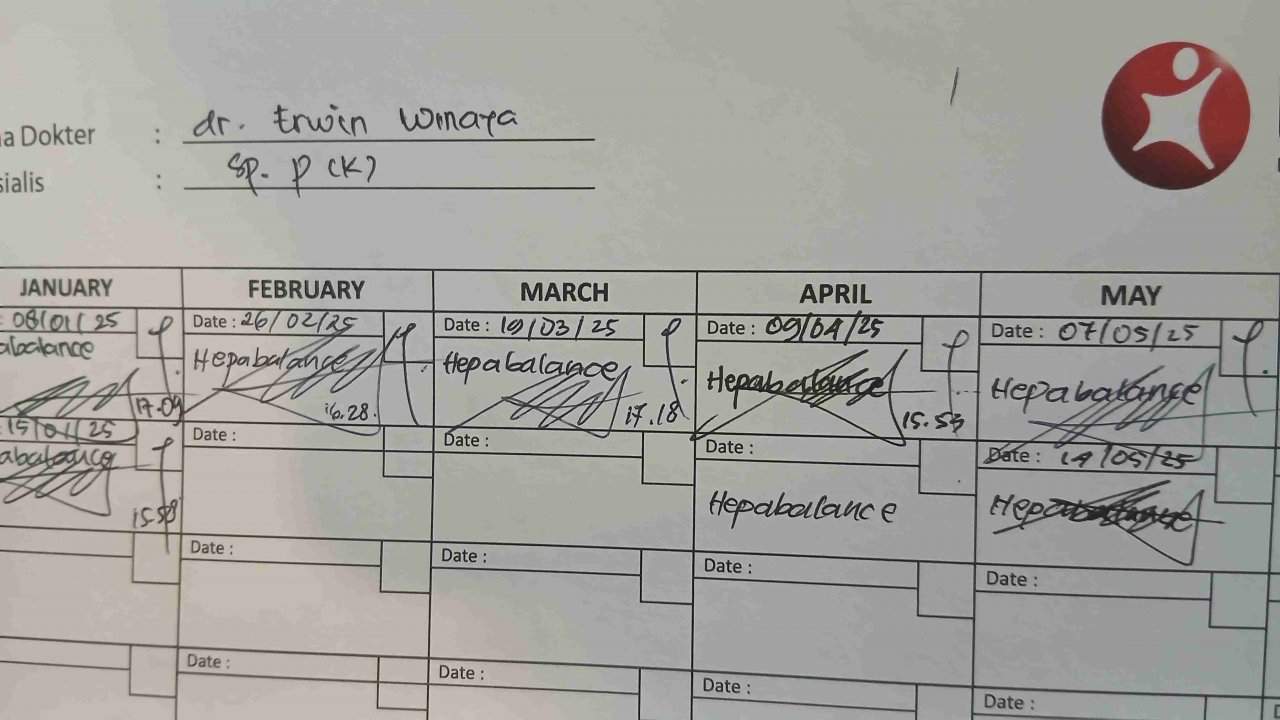 a Dokter : dr. Erwin Winaya
sialis : Sp. P (K)
JANUARY FEBRUARY MARCH APRIL MAY
: 08/01/25 Date : 26/02/25 Date : 19/03/25 Date : 09/04/25 Date : 07/05/25
abalance Hepabalance Hepabalance Hepabalance Hepabalance
17.09 16.28 17.18 15.53
: 15/01/25 Date : Date : Date : Date : 14/05/25
abalance Hepabalance Hepabalance
15.58
Date : Date : Date : Date :
Date : Date : Date : Date :